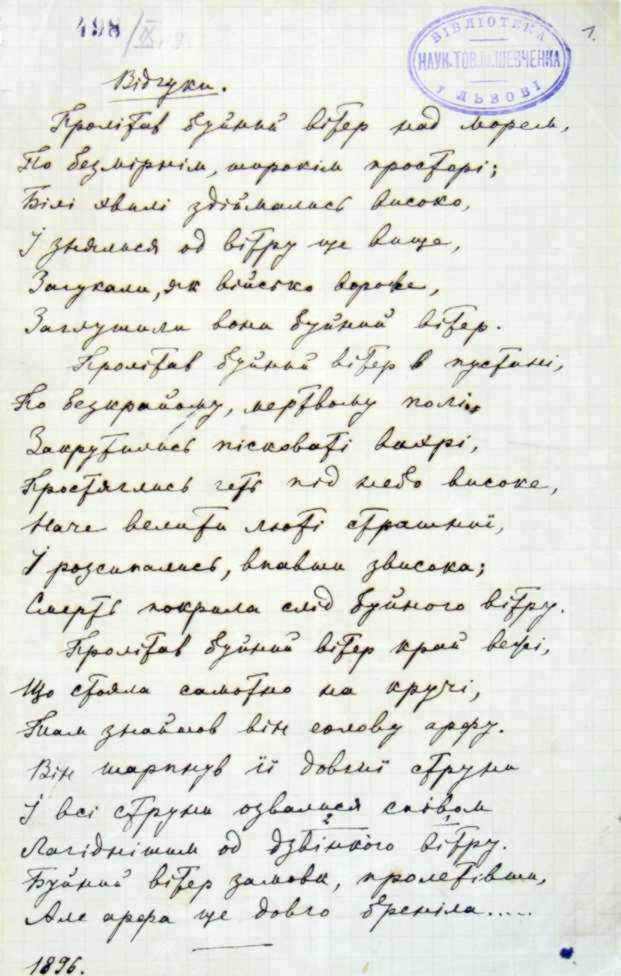 498/IX, 9.
БІБЛІОТЕКА
НАУК. ТОВ. ІМ. ШЕВЧЕНКА
У ЛЬВОВІ
1.
Відгуки.
Пролітав буйний вітер над морем,
По безмірнім, широкім просторі;
Білі хвилі здіймались високо,
І знялися од вітру ще вище,
Загукали, як військо вороже,
Заглушили вони буйний вітер.
Пролітав буйний вітер в пустині,
По безкрайому, мертвому полі.
Закрутились пісковаті вихрі,
Простяглись геть під небо високе,
Наче велити люті страшнії,
І розсипались, впавши звисока;
Смерть покрила слід буйного вітру.
Пролітав буйний вітер край вежі,
Що стояла самотно на кручі,
Там знайшов він еолову арфу.
Він шарпнув її довгії струни
І всі струни озвалися співом
Лагіднішим од дзвінкого вітру.
Буйний вітер замовк, пролетівши,
Але арфа ще довго бреніла.....
1896.